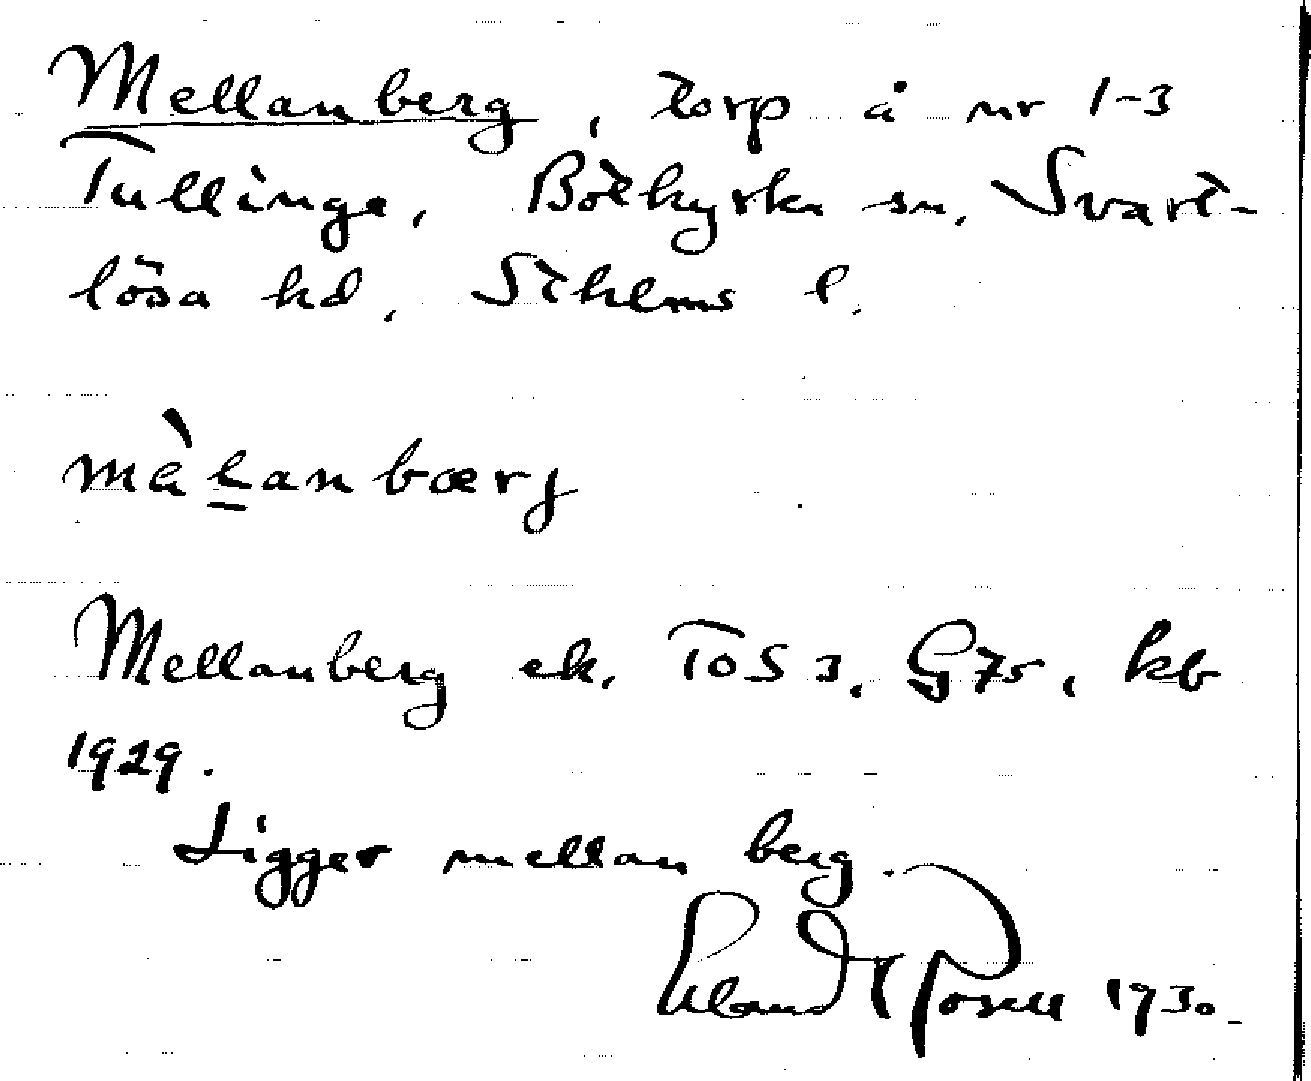 Mellanberg, torp å nr 1-3
Tullinge, Botkyrka sn, Svart-
lösa hd, Sthlms l.
màlanbærj
Mellanberg ek. ToS 3, G75, kb
1929.
Ligger mellan berg.
Erland Rosell 1930.